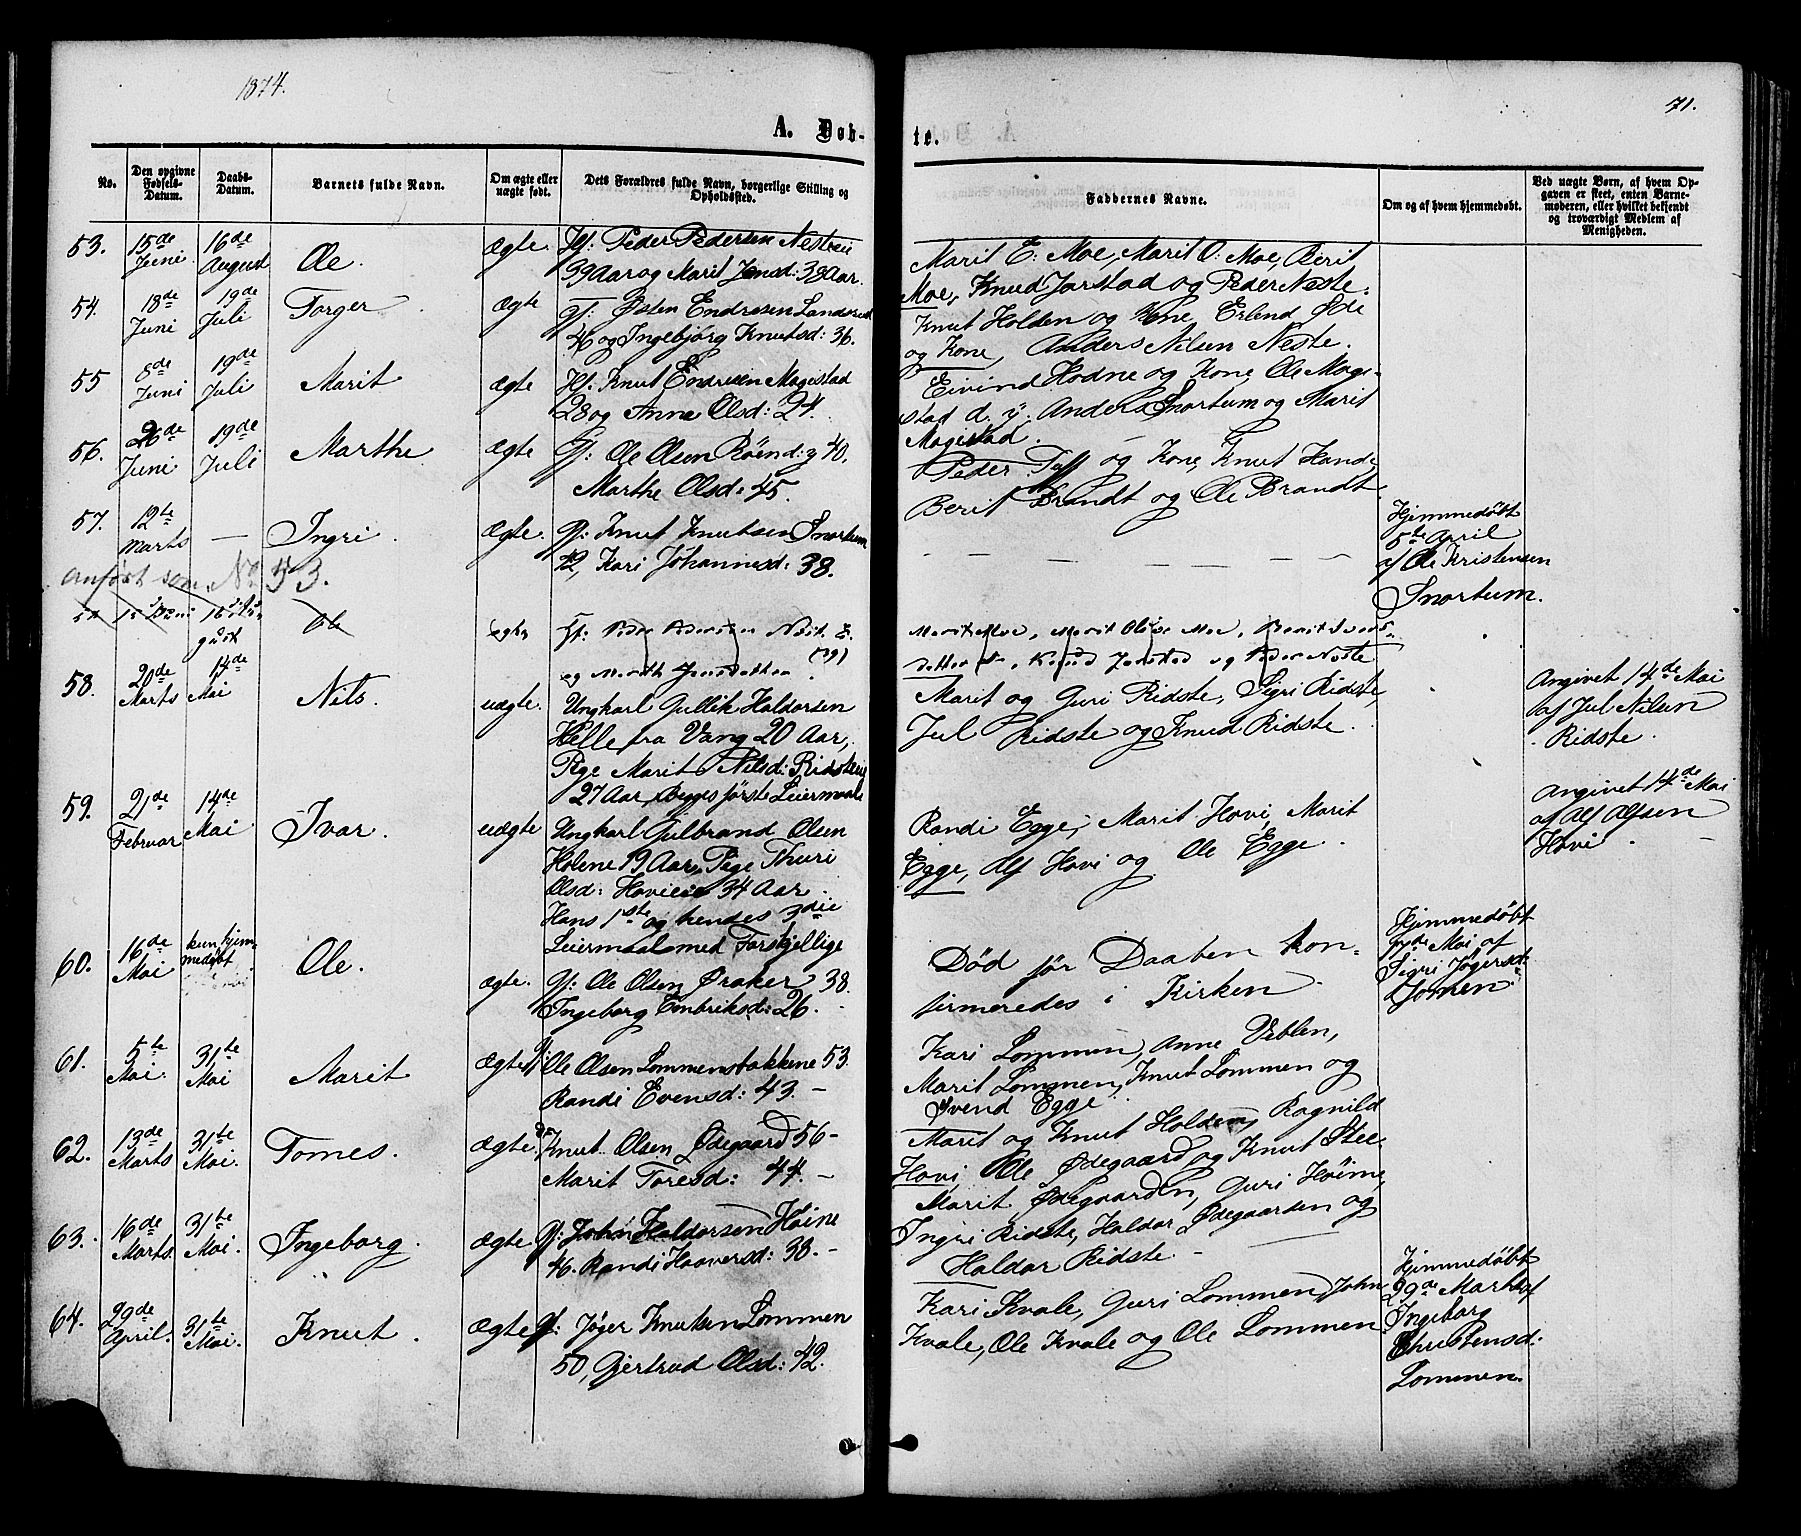 1874.
71.
A. Døb-
te.
No.
Den opgivne Fødsels-Datum.
Daabs-Datum.
Barnets fulde Navn.
Om ægte eller uægte født.
Dets Forældres fulde Navn, borgerlige Stilling og Opholdssted.
Faddernes Navne.
Om og af hvem hjemmedøbt.
Ved uægte Børn, af hvem Opgaven er skeet, enten Barnemoderen, eller hvilket bekjendt og troværdigt Medlem af Menigheden.
53. 15de Juni 16de August Ole. ægte.
Peder Pedersen
39 Aar og Marit Jensd: 38 Aar.
Marit E. Moe, Marit O. Moe, Berit
Moe, Knud Jarstad og Peder Neste.
54. 18de Juni 19de Juli Torger ægte
Gf: Østen Endresen
46 og Ingebjörg Knutsd: 36.
Knut Holden og Kone, Erlend Øde
og Kone, Anders Nilsen Neste.
55 8de Juni 19de Juli Marit ægte
Knut Endresen Magistad
28 og Anne Olsd: 24.
Eivind Hodne og Kone, Ole Magi-
stad d. y. Anders Snortum og Marit
Magistad.
56. 26de Juni 19de Juli Marthe ægte
Gf: Ole Olsen Röen d: y 40.
Marthe Olsd: 45.
Peder Tuff og Kone, Knut Hande,
Berit Brandt og Ole Brandt
57. 12te Marts — Ingri. Ægte.
Gf: Knut Knutsen Snortum
42, Kari Johannesd: 38.
— — — — — —
Hjemmedöbt
5te April
af Ole Kristensen
Snortum.
Anfört som No 53.
57 15 Juni 16 August Ole ægte
Peder Pedersen Nest. E.
og Marit Jensdatter (39)
Marit Moe, Marit Olsd Moe, Berit
datter, Knud Jarstad og Peder Neste
58. 20de Marts 14de Mai Nils. uægte.
Ungkarl Gullik Haldorsen
Helle fra Vang 20 Aar,
Pige Marit Nilsd: Ridste
27 Aar, Begges förste Leiermaal
Marit og Guri Ridste, Sigri Ridste,
Jul Ridste og Knud Ridste.
Angivet 14de Mai
af Jul Nilsen
Ridste.
59. 21de Februar 14de Mai Ivar. uægte
Ungkarl Gulbrand Olsen
Holene 19 Aar, Pige Thuri
Olsd: 34 Aar.
Hans 1ste og hendes 3die
Leiermaal med Forskjellige
Randi Egge, Marit Hovi, Marit
Egge, Alf Hovi og Ole Egge.
Angivet 14de Mai
af Alf Alfsen
Hovi.
60. 16de Mai kun hjemmedöbt Ole. ægte.
Gf: Ole Olsen Øraker 38.
Ingeborg Embriksd: 26.
Död för Daaben kon-
firmeredes i Kirken.
Hjemmedöbt
Mai af
Sigri Jögersd:
Jomen.
61. 5te Mai. 31te Mai Marit Ægte
Ole Olsen Lommenstakkene 53.
Randi Evensd: 43. —
Kari Lommen, Anne Veblen,
Marit Lommen, Knut Lommen og
Svend Egge.
62. 13de Marts 31te Mai. Tomes. Ægte.
Knut Olsen Ødegaard 56 —
Marit Toresd: 44. —
Marit og Knut Holden, Ragnild
Hovi, Ole Ødegaard og Knut
63. 16de Marts 31te Mai. Ingeborg. ægte
Gf: John Haldorsen Höine
46. Randi Haaversd: 38. —
Marit Ødegaarden, Guri Höine,
Ingri Ridste, Haldor Ødegaarden og
Haldor Ridste. —
64. 29de April. 31te Mai. Knut. Ægte
Gf: Jöger Knutsen Lommen
50, Gjertrud Olsd: 42.
Kari Kvale, Guri Lommen, John
Kvale, Ole Kvale og Ole Lommen.
Hjemmedöbt
29de Marts af
Ingeborg
Christensd:
Lommen.